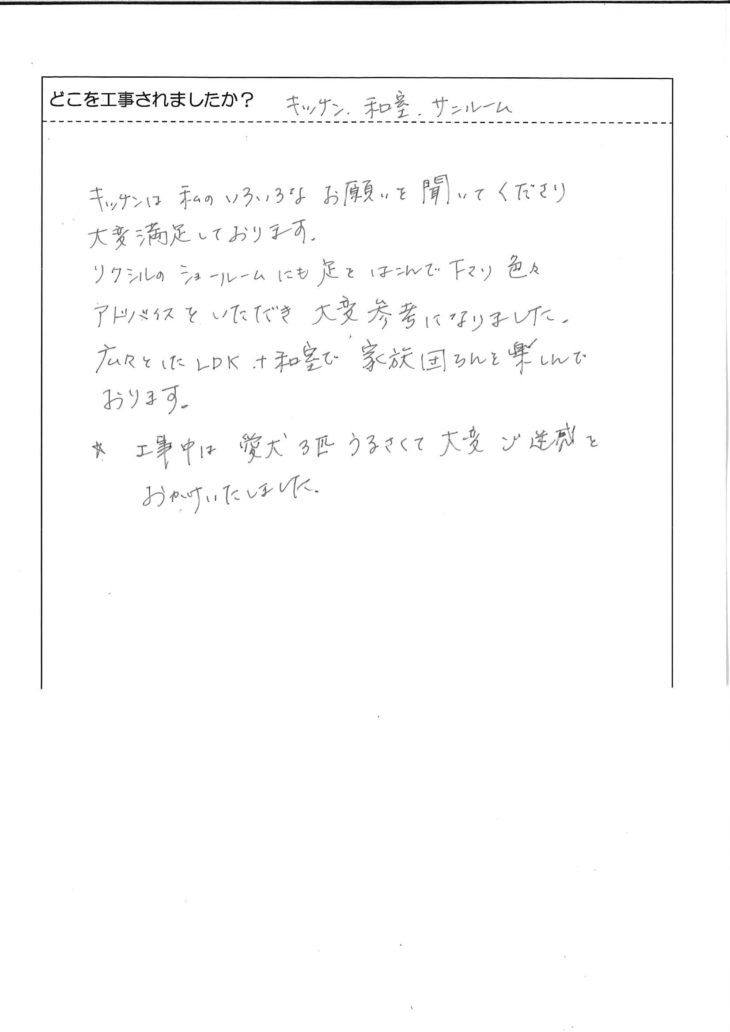 どこを工事されましたか? キッチン、和室、サンルーム
キッチンは私のいろいろなお願いを聞いてくださり
大変満足しております。
リクシルのショールームにも足をはこんで下さり色々
アドバイスをいただき大変参考になりました。
広々としたLDK+和室で家族団らんを楽しんで
おります。
* 工事中は愛犬3匹うるさくて大変ご迷惑を
おかけいたしました。